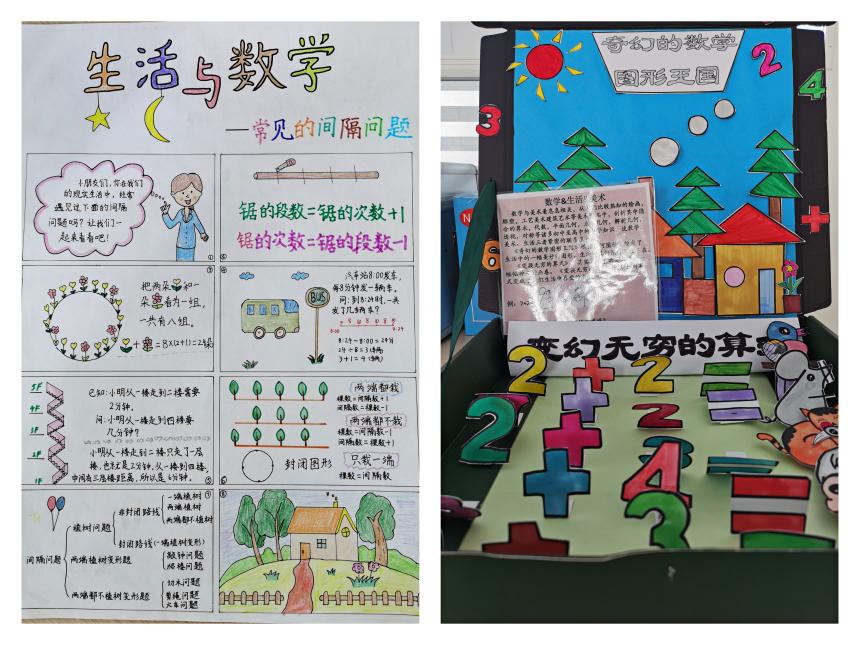 生活与数学
—常见的间隔问题
小朋友们,你在我们
的现实生活中,经常
遇见过下面的间隔
问题吗?让我们一
起来看看吧!
①
锯的段数=锯的次数+1
锯的次数=锯的段数-1
把两朵和一
朵看为一组,
一共有八组。
+=8×(2+1)=24朵
汽车站8:00发车,
每8分钟发一辆车。
问:到8:24时,一共
发了几辆车?
BUS
8:00
8:24
8:24-8:00=24分
24÷8=3(辆)
3+1=4(辆)
5F
4F
3F
2F
1F
已知:小明从一楼走到二楼需要
2分钟。
问:小明从一楼走到四楼要
几分钟?
小明从一楼走到二楼只走了一层
楼,也就是2分钟,从一楼到四楼,
中间有三层楼距离,所以是6分钟。
两端都栽
棵数=间隔数+1
间隔数=棵数-1
两端都不栽
棵数=间隔数-1
间隔数=棵数+1
只栽一端
棵数=间隔数
封闭图形
间隔问题
植树问题
非封闭路线
一端植树
两端植树
两端都不植树
封闭路线(一端植树变形)
两端植树变形题
敲钟问题
爬楼问题
两端都不植树变形题
切木问题
剪绳问题
火车问题
⑦
⑧
奇幻的数学
图形王国
2
4
3
数学&生活&美术
变幻无穷的算
2+2=
2+2=
+3
+4=
3=